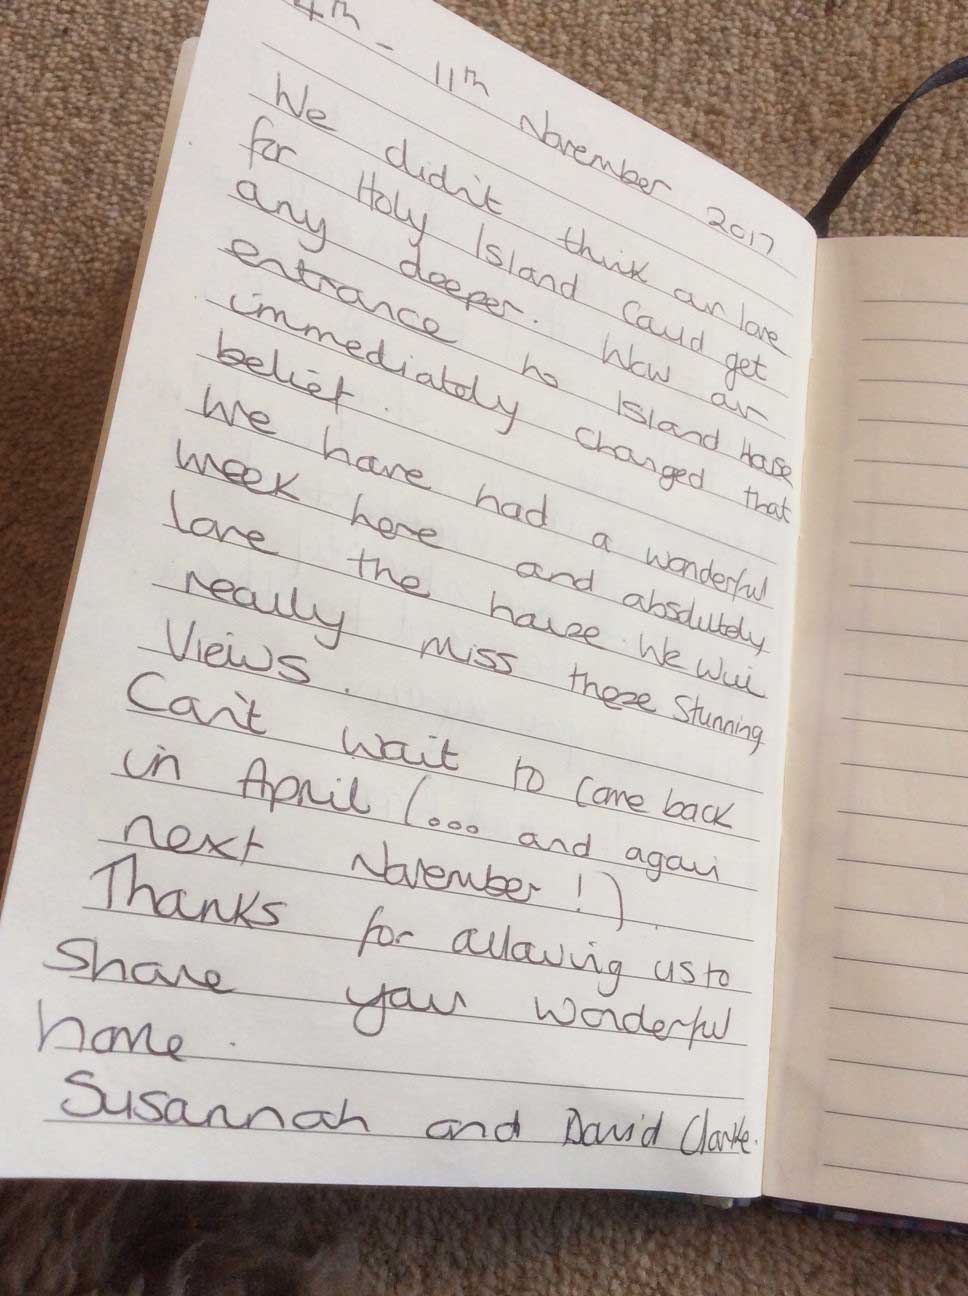 4th - 11th November 2017
We didn't think our love
for Holy Island could get
any deeper. How our
entrance to Island House
immediately changed that
belief.
We have had a wonderful
week here and absolutely
love the house. We will
really miss these stunning
views.
Can't wait to come back
in April (... and again
next November!)
Thanks for allowing us to
share your wonderful
home.
Susannah and David Clarke.